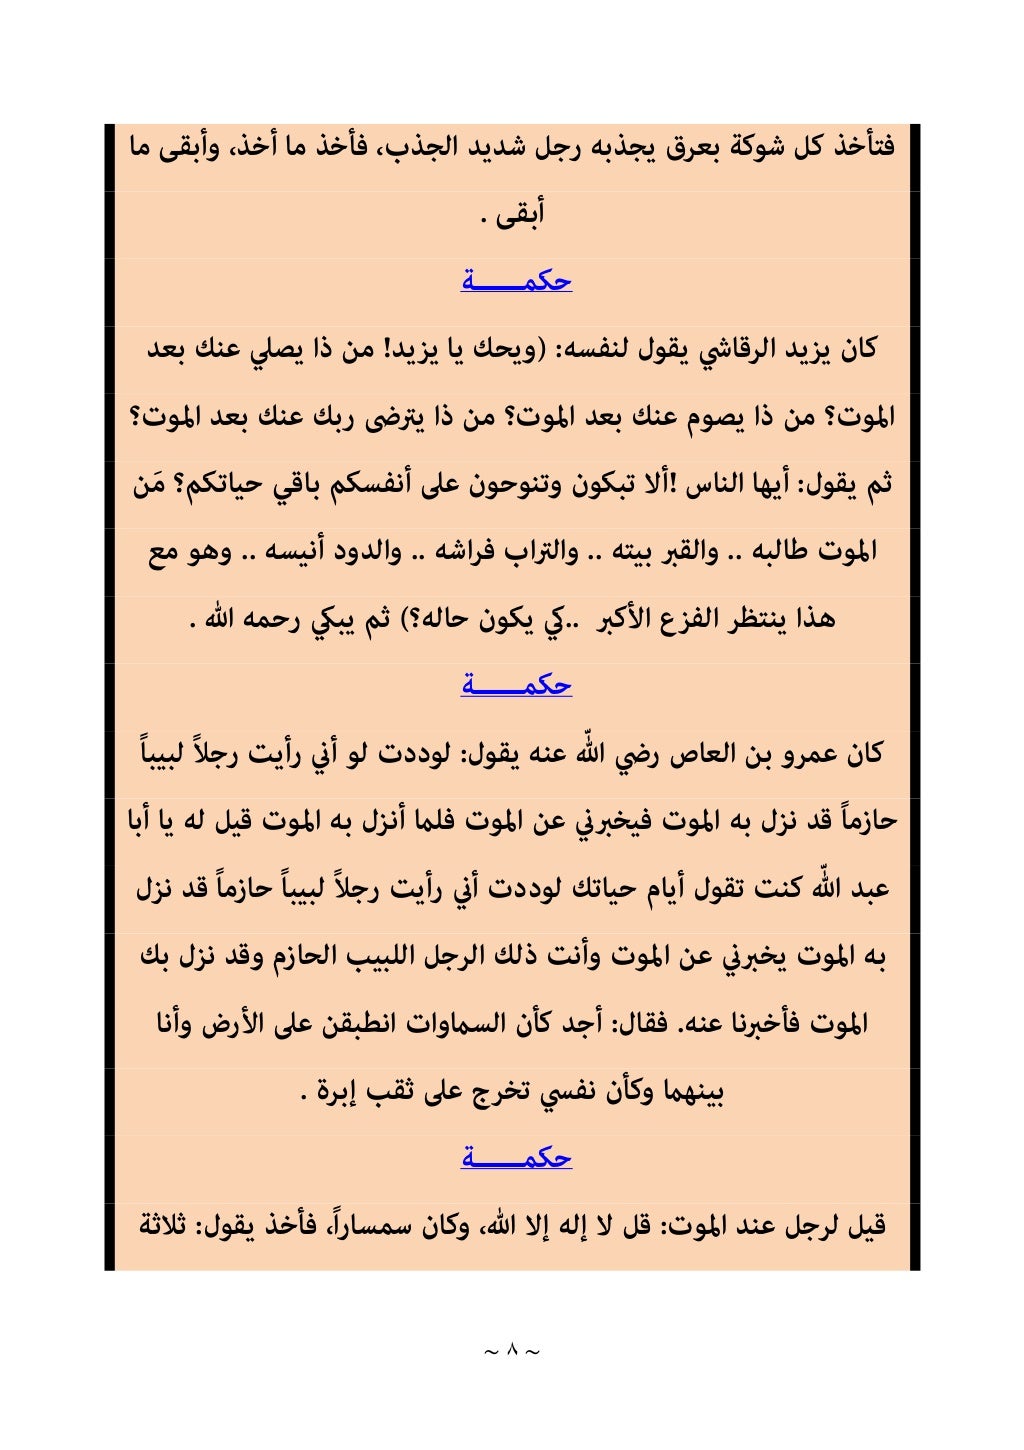 فتأخذ كل شوكة بعرق يجذبه رجل شديد الجذب، فأخذ ما أخذ، وأبقى ما
أبقى .
حكمـــــــة
كان يزيد الرقاشي يقول لنفسه: (ويحك يا يزيد! من ذا يصلي عنك بعد
الموت؟ من ذا يصوم عنك بعد الموت؟ من ذا يترضى ربك عنك بعد الموت؟
ثم يقول: أيها الناس !ألا تبكون وتنوحون على أنفسكم باقي حياتكم؟ مَن
الموت طالبه .. والقبر بيته .. والتراب فراشه .. والدود أنيسه .. وهو مع
هذا ينتظر الفزع الأكبر ..كي يكون حاله؟) ثم يبكي رحمه الله .
حكمـــــــة
كان عمرو بن العاص رضي الله عنه يقول: لوددت لو أني رأيت رجلاً لبيباً
حازماً قد نزل به الموت فيخبرني عن الموت فلما أنزل به الموت قيل له يا أبا
عبد الله كنت تقول أيام حياتك لوددت أني رأيت رجلاً لبيباً حازماً قد نزل
به الموت يخبرني عن الموت وأنت ذلك الرجل اللبيب الحازم وقد نزل بك
الموت فأخبرنا عنه. فقال: أجد كأن السماوات انطبقن على الأرض وأنا
بينهما وكأن نفسي تخرج على ثقب إبرة .
حكمـــــــة
قيل لرجل عند الموت: قل لا إله إلا الله، وكان سمساراً، فأخذ يقول: ثلاثة
~ ٨ ~